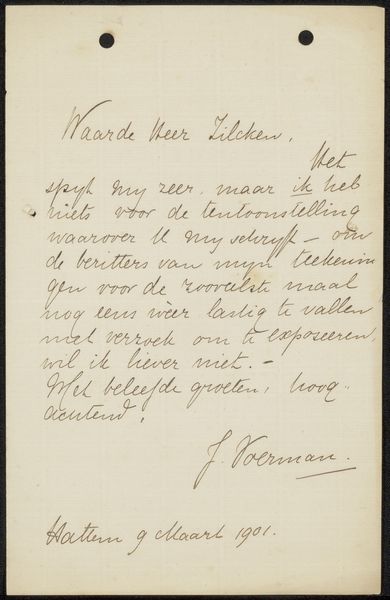 Waarde Heer Zilcken,
Het
spijt mij zeer, maar ik heb
niets voor de tentoonstelling
waarover U mij schrijft – om
de bezitters van mijn teekenin
gen voor de zooveelste maal
nog eens wéer lastig te vallen
met verzoek om te exposeeren,
wil ik liever niet. –
Met beleefde groeten, hoog-
achtend,
J. Voerman.
Hattem 9 Maart 1901.